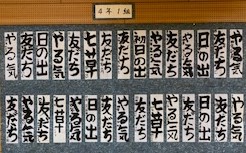 4年1組
友だち
やる気
日の出
友だち
初日の出
友だち
七草
友だち
やる気
日の出
友だち
やる気
友だち
やる気
日の出
友だち
やる気
七草
友だち
やる気
友だち
日の出
やる気
七草
友だち
やる気
友だち